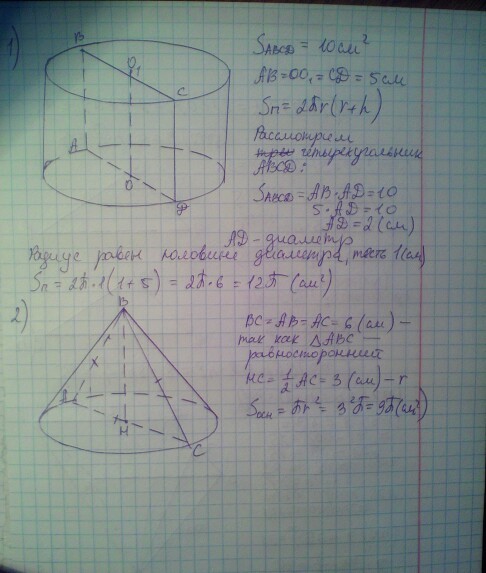 1)
B
O₁
C
A
O
D
S_ABCD = 10 см²
AB = OO₁ = CD = 5 см
Sп = 2πr(r+h)
Рассмотрим
четырехугольник
ABCD:
S_ABCD = AB · AD = 10
5 · AD = 10
AD = 2 (см)
AD - диаметр
Радиус равен половине диаметра, т.есть 1 (см)
Sп = 2π · 1(1 + 5) = 2π · 6 = 12π (см²)
2)
B
H
C
BC = AB = AC = 6 (см) —
так как △ABC —
равносторонний
HC = 1/2 AC = 3 (см) - r
Sосн = πr² = 3²π = 9π (см²)